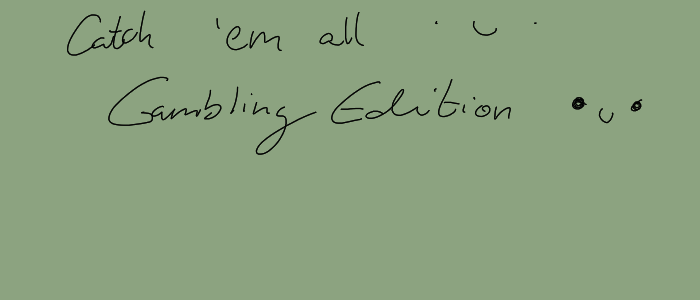 Catch 'em all · ᴗ ·
Gambling Edition •ᴗ•